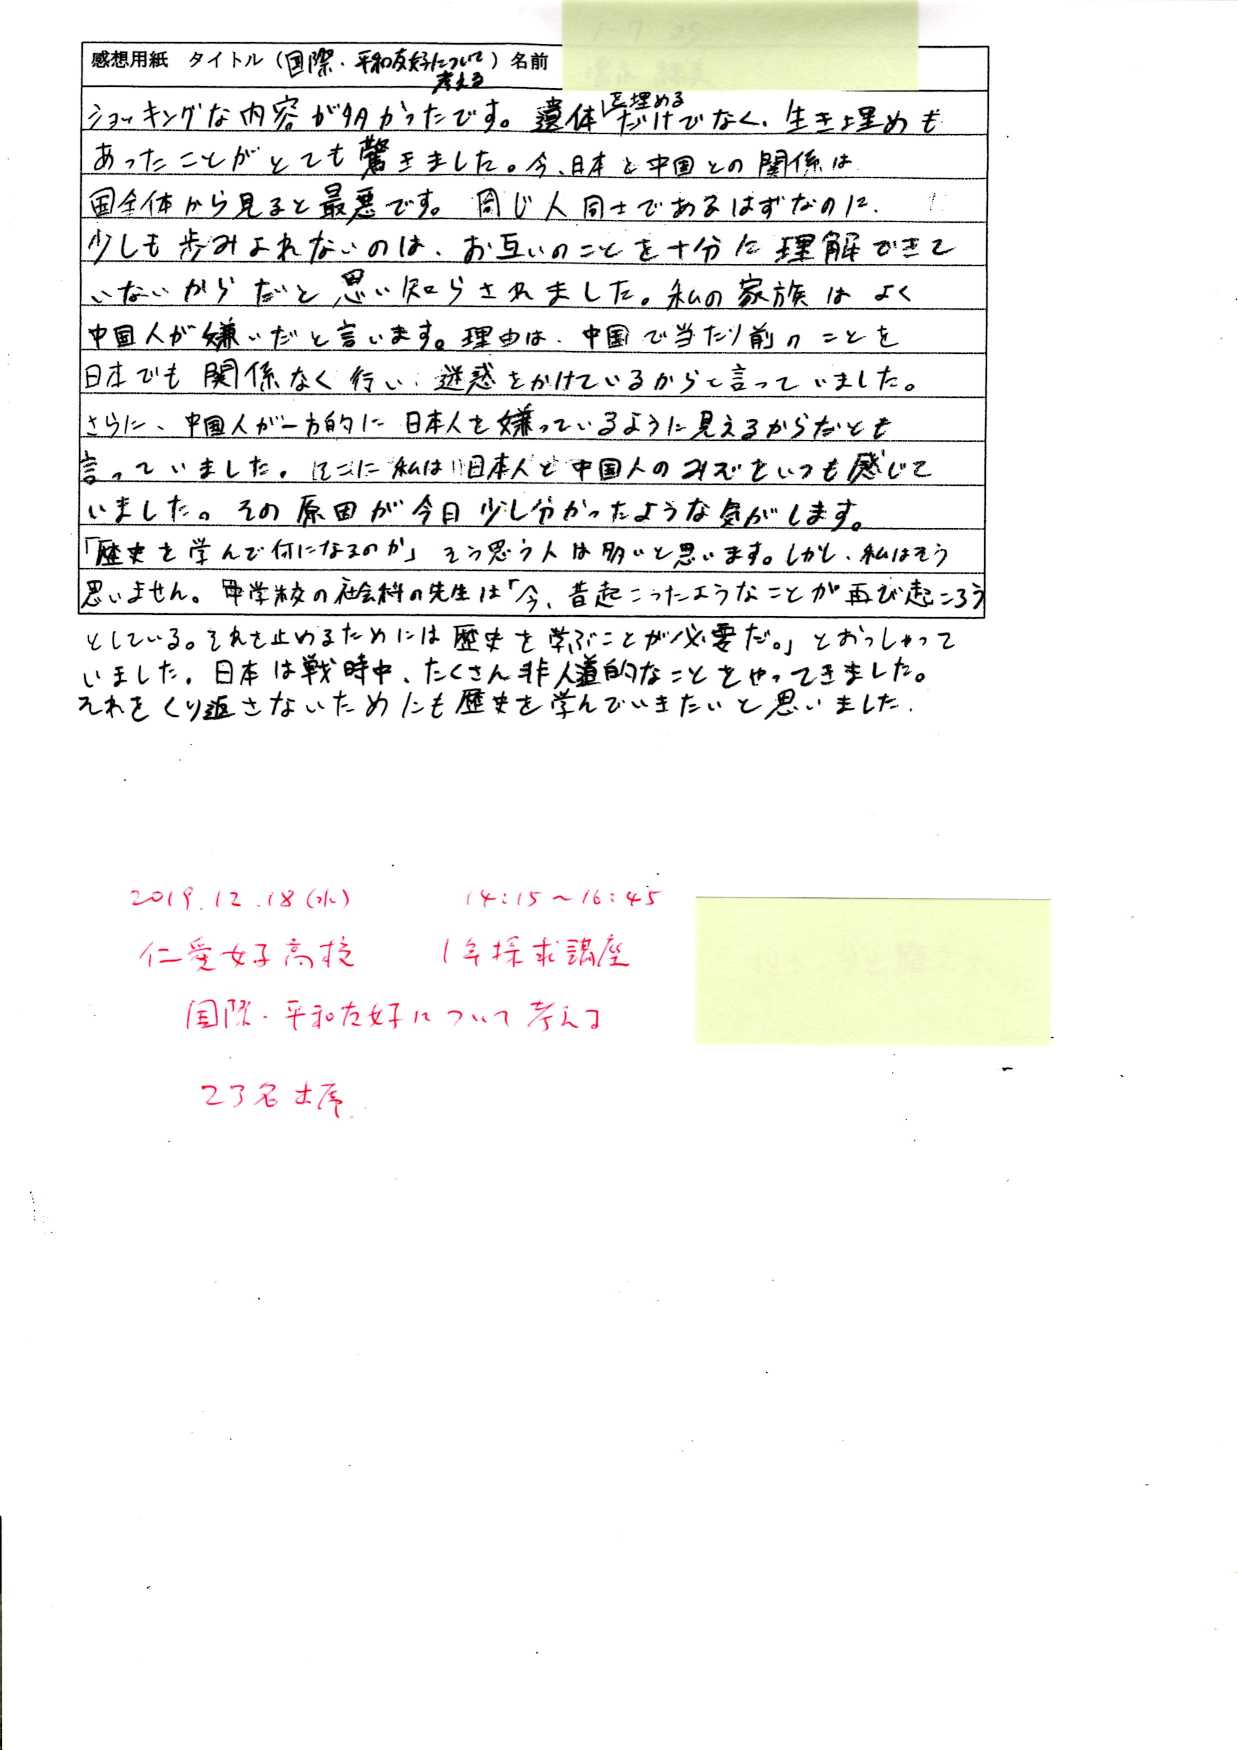 感想用紙 タイトル(国際・平和友好について考える)名前
ショッキングな内容が多かったです。遺体を埋めるだけでなく、生き埋めも
あったことがとても驚きました。今、日本と中国との関係は
国全体から見ると最悪です。同じ人同士であるはずなのに、
少しも歩みよれないのは、お互いのことを十分に理解できて
いないからだと思い知らされました。私の家族はよく
中国人が嫌いだと言います。理由は、中国で当たり前のことを
日本でも関係なく行い、迷惑をかけているからと言っていました。
さらに、中国人が一方的に日本人を嫌っているように見えるからだとも
言っていました。そこに私は日本人と中国人のみぞをいつも感じて
いました。その原因が今日少し分かったような気がします。
「歴史を学んで何になるのか」そう思う人は多いと思います。しかし、私はそう
思いません。中学校の社会科の先生は「今、昔起こったようなことが再び起ころう
としている。それを止めるためには歴史を学ぶことが必要だ。」とおっしゃって
いました。日本は戦時中、たくさん非人道的なことをやってきました。
それをくり返さないためにも歴史を学んでいきたいと思いました。
2019.12.18(水) 14:15~16:45
仁愛女子高校 1年探求講座
国際・平和友好について考える
23名出席